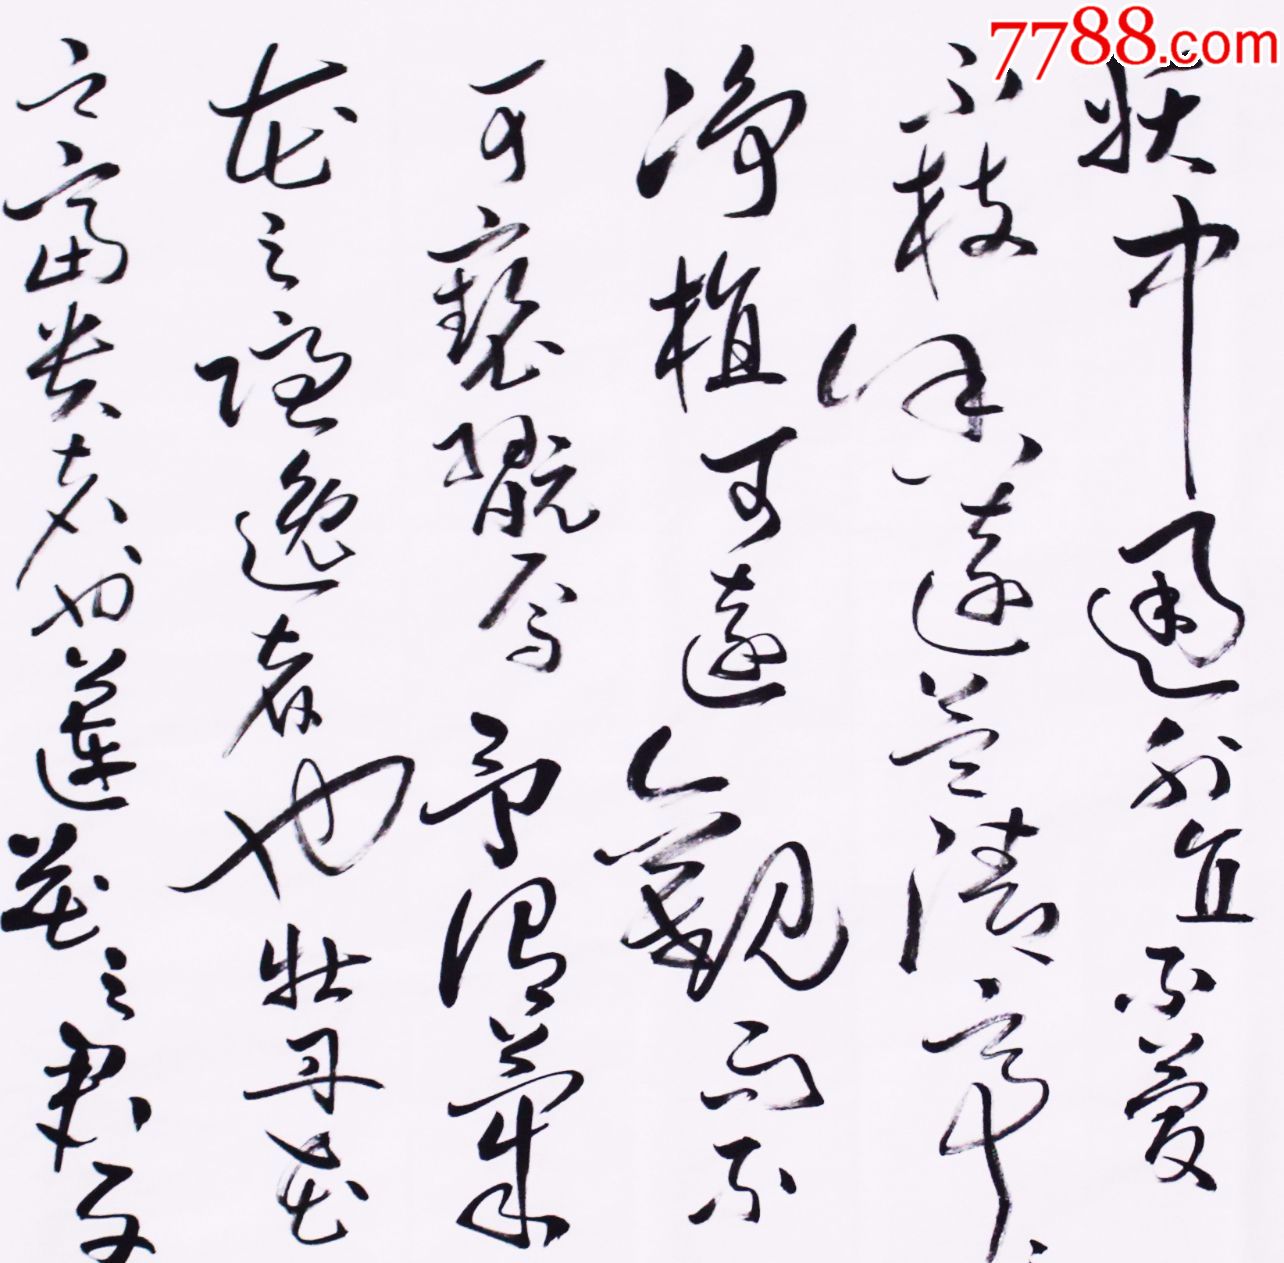 妖中通外直不蔓
不枝香遠益清亭
淨植可遠觀而不
可褻翫焉予謂菊
花之隱逸者也牡丹花
之富貴者也蓮花之君子
7788.com